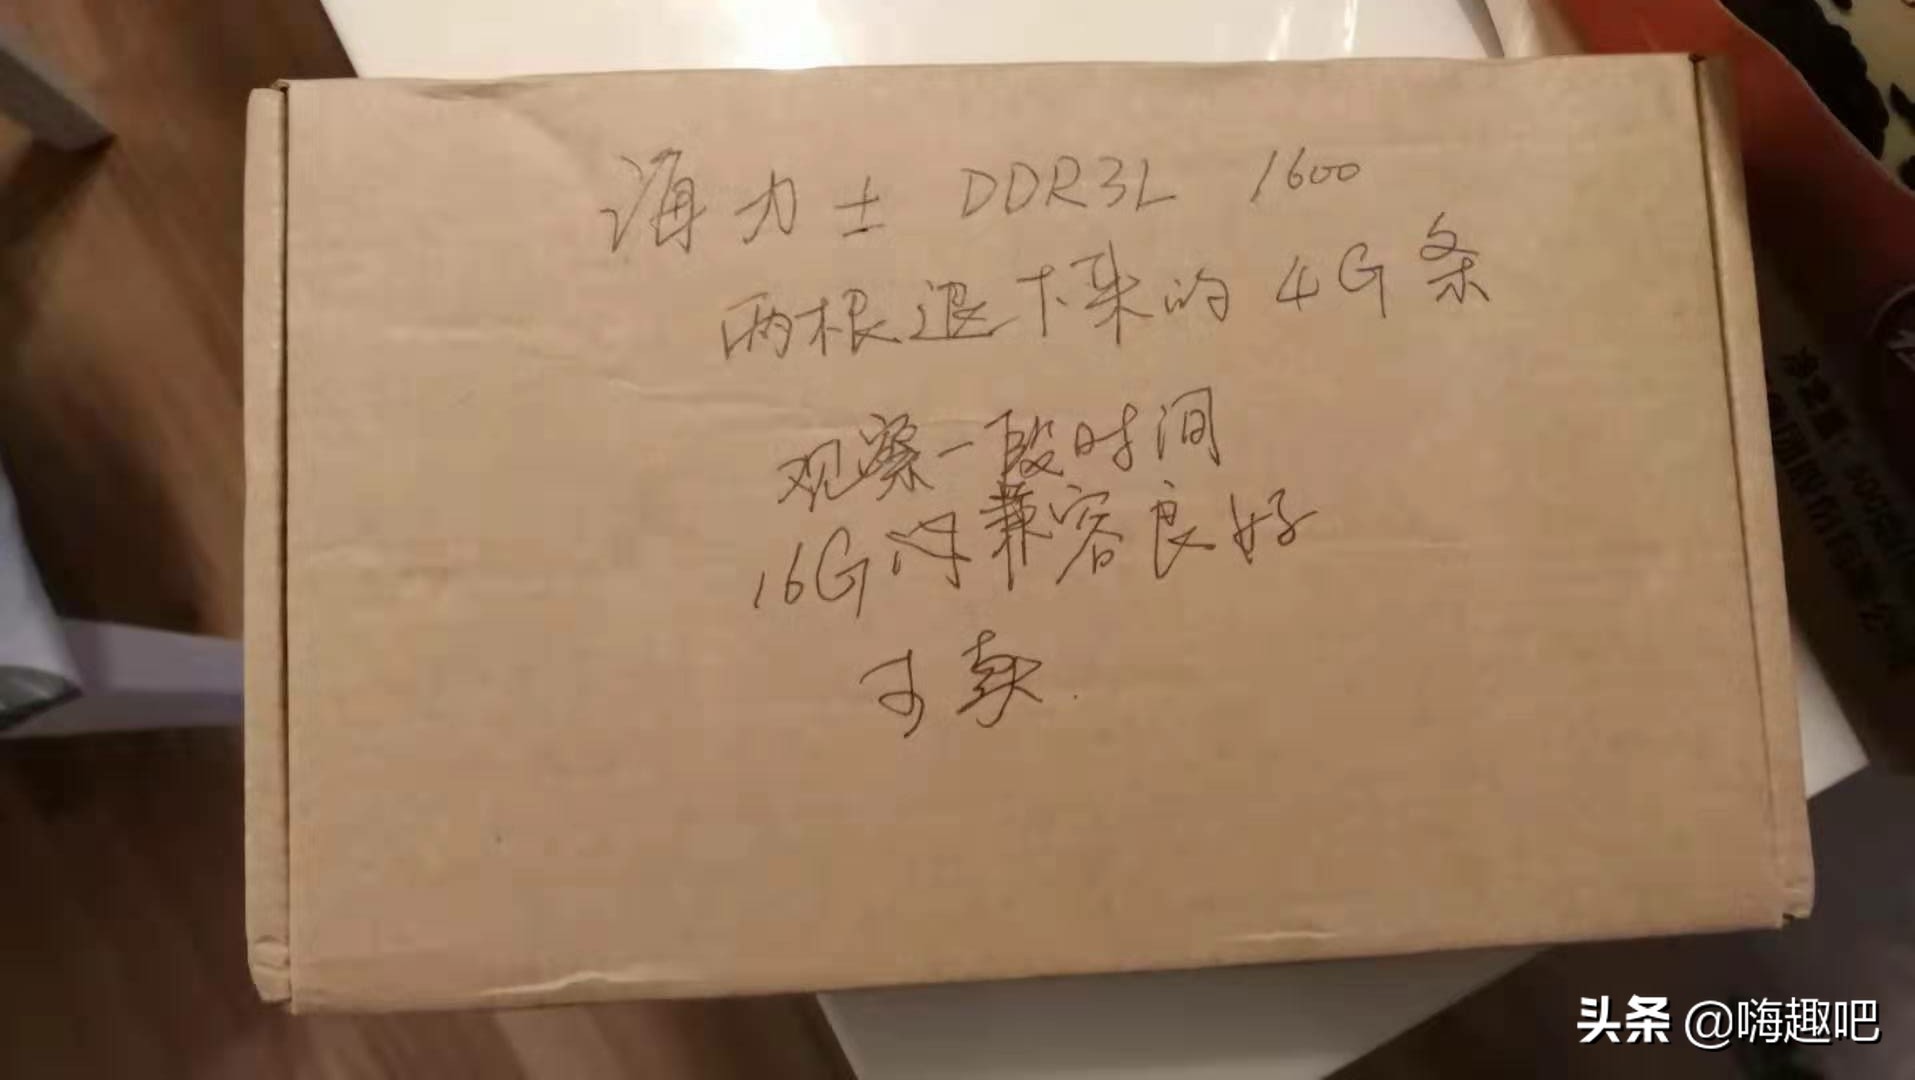 海力士 DDR3L 1600
两根退下来的 4G条
观察一段时间
16G内兼容良好
可卖.
头条 @嗨趣吧